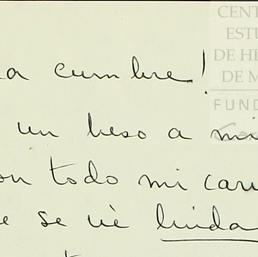 a cumbre!
un beso a mi
on todo mi cari
e se ve linda
CENT
ESTU
DE HI
DE M
FUND